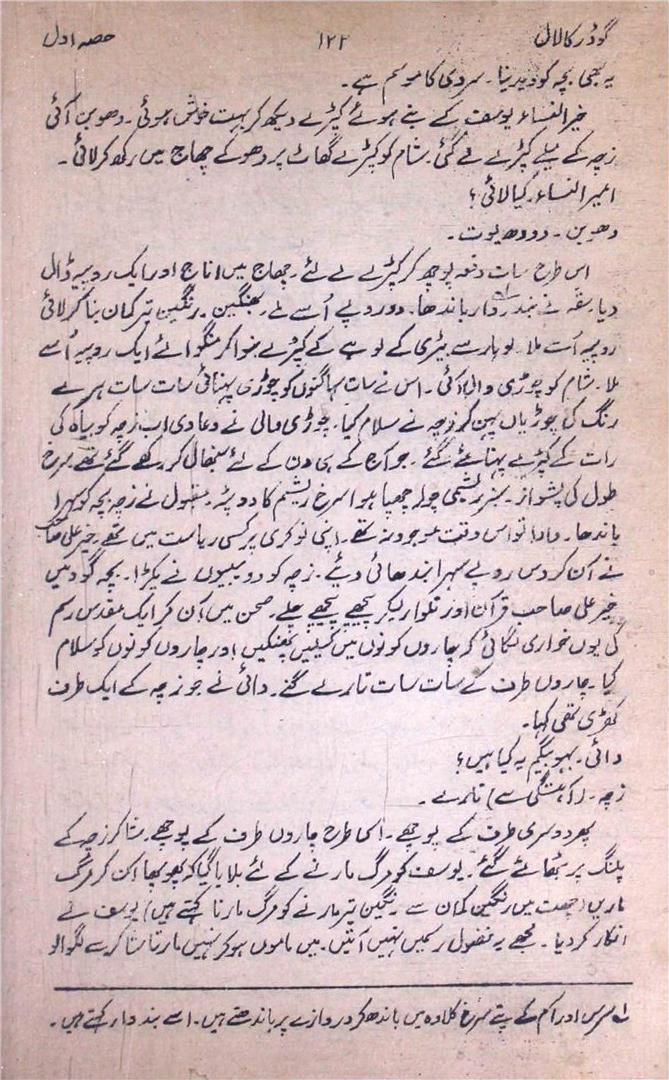 گودڑ کا لال ۱۲۲ حصہ اول
یہ بھی بچہ کو دیدینا۔ سردی کا موسم ہے۔
خیر النساء یوسف کے بنے ہوئے کپڑے دیکھ کر بہت خوش ہوئی۔ دھوبن آئی
زچہ کے میلے کپڑے لے گئی۔ شام کو کپڑے گھاٹ پر دھو کے چھاج میں رکھ کر لائی۔
امیر النساء۔ کیا لائی؟
دھوبن۔ دودھ پوت۔
اس طرح سات دفعہ پوچھ کر کپڑے لے لئے۔ چھاج میں اناج اور ایک روپیہ ڈال
دیا۔ سقہ نے بندردار باندھا۔ دو روپے اُسے ملے۔ بھنگین۔ رنگین تیر کمان بنا کر لائی
روپیہ اُسے ملا۔ لوہار سے بیڑی کے لوہے کے کپڑے بنوا کر منگوائے ایک روپیہ اُسے
ملا۔ شام کو چوڑی والی آئی۔ اس نے سات سہاگنوں کو چوڑی پہنائی سات سات ہرے
رنگ کی چوڑیاں پہن کر زچہ نے سلام کیا۔ چوڑی والی نے دعا دی اب زچہ کو بیاہ کی
رات کے کپڑے پہنائے گئے۔ جو آج کے ہی دن کے لئے سنبھال کر رکھے گئے تھے۔ سرخ
طول کی پشواز۔ سبز ریشمی چولہ چھپا ہوا سرخ ریشم کا دوپٹہ۔ مقبول نے زچہ بچہ کو سہرا
باندھا۔ دادا تو اس وقت موجود نہ تھے۔ اپنی نوکری پر کسی ریاست میں تھے۔ خیر علی صاحب
نے آن کر دس روپے سہرا بندھائی دیئے۔ زچہ کو دو بیبیوں نے پکڑا۔ بچہ گود میں
خیر علی صاحب قرآن اور تلوار لیکر پیچھے پیچھے چلے۔ صحن میں آن کر ایک مقدس رسم
کی یوں خواری لگائی کہ چاروں کونوں میں کھیلیں پھنکیں اور چاروں کونوں کو سلام
کیا۔ چاروں طرف کے سات سات تارے گنے۔ دائی نے جو زچہ کے ایک طرف
کھڑی تھی کہا۔
دائی۔ بہو بیگم یہ کیا ہیں؟
زچہ۔ (آہستگی سے) تارے۔
پھر دوسری طرف کے پوچھے۔ اسی طرح چاروں طرف کے پوچھے۔ شاکر زچہ کے
پلنگ پر بٹھائے گئے۔ یوسف کو مرگ مارنے کے لئے بلایا گیا کہ پھوپھا آن کر مرگ
ماریں (چھت میں رنگین کمان سے رنگین تیر مارنے کو مرگ مارنا کہتے ہیں) یوسف نے
انکار کر دیا۔ مجھے یہ فضول رسمیں نہیں آتیں۔ میں ماموں ہو کر نہیں مارتا شاکر سے لگوا لو
۱؎ سرس اور آم کے پتے سرخ کلاوہ میں باندھ کر دروازے پر باندھتے ہیں۔ اسے بندردار کہتے ہیں۔